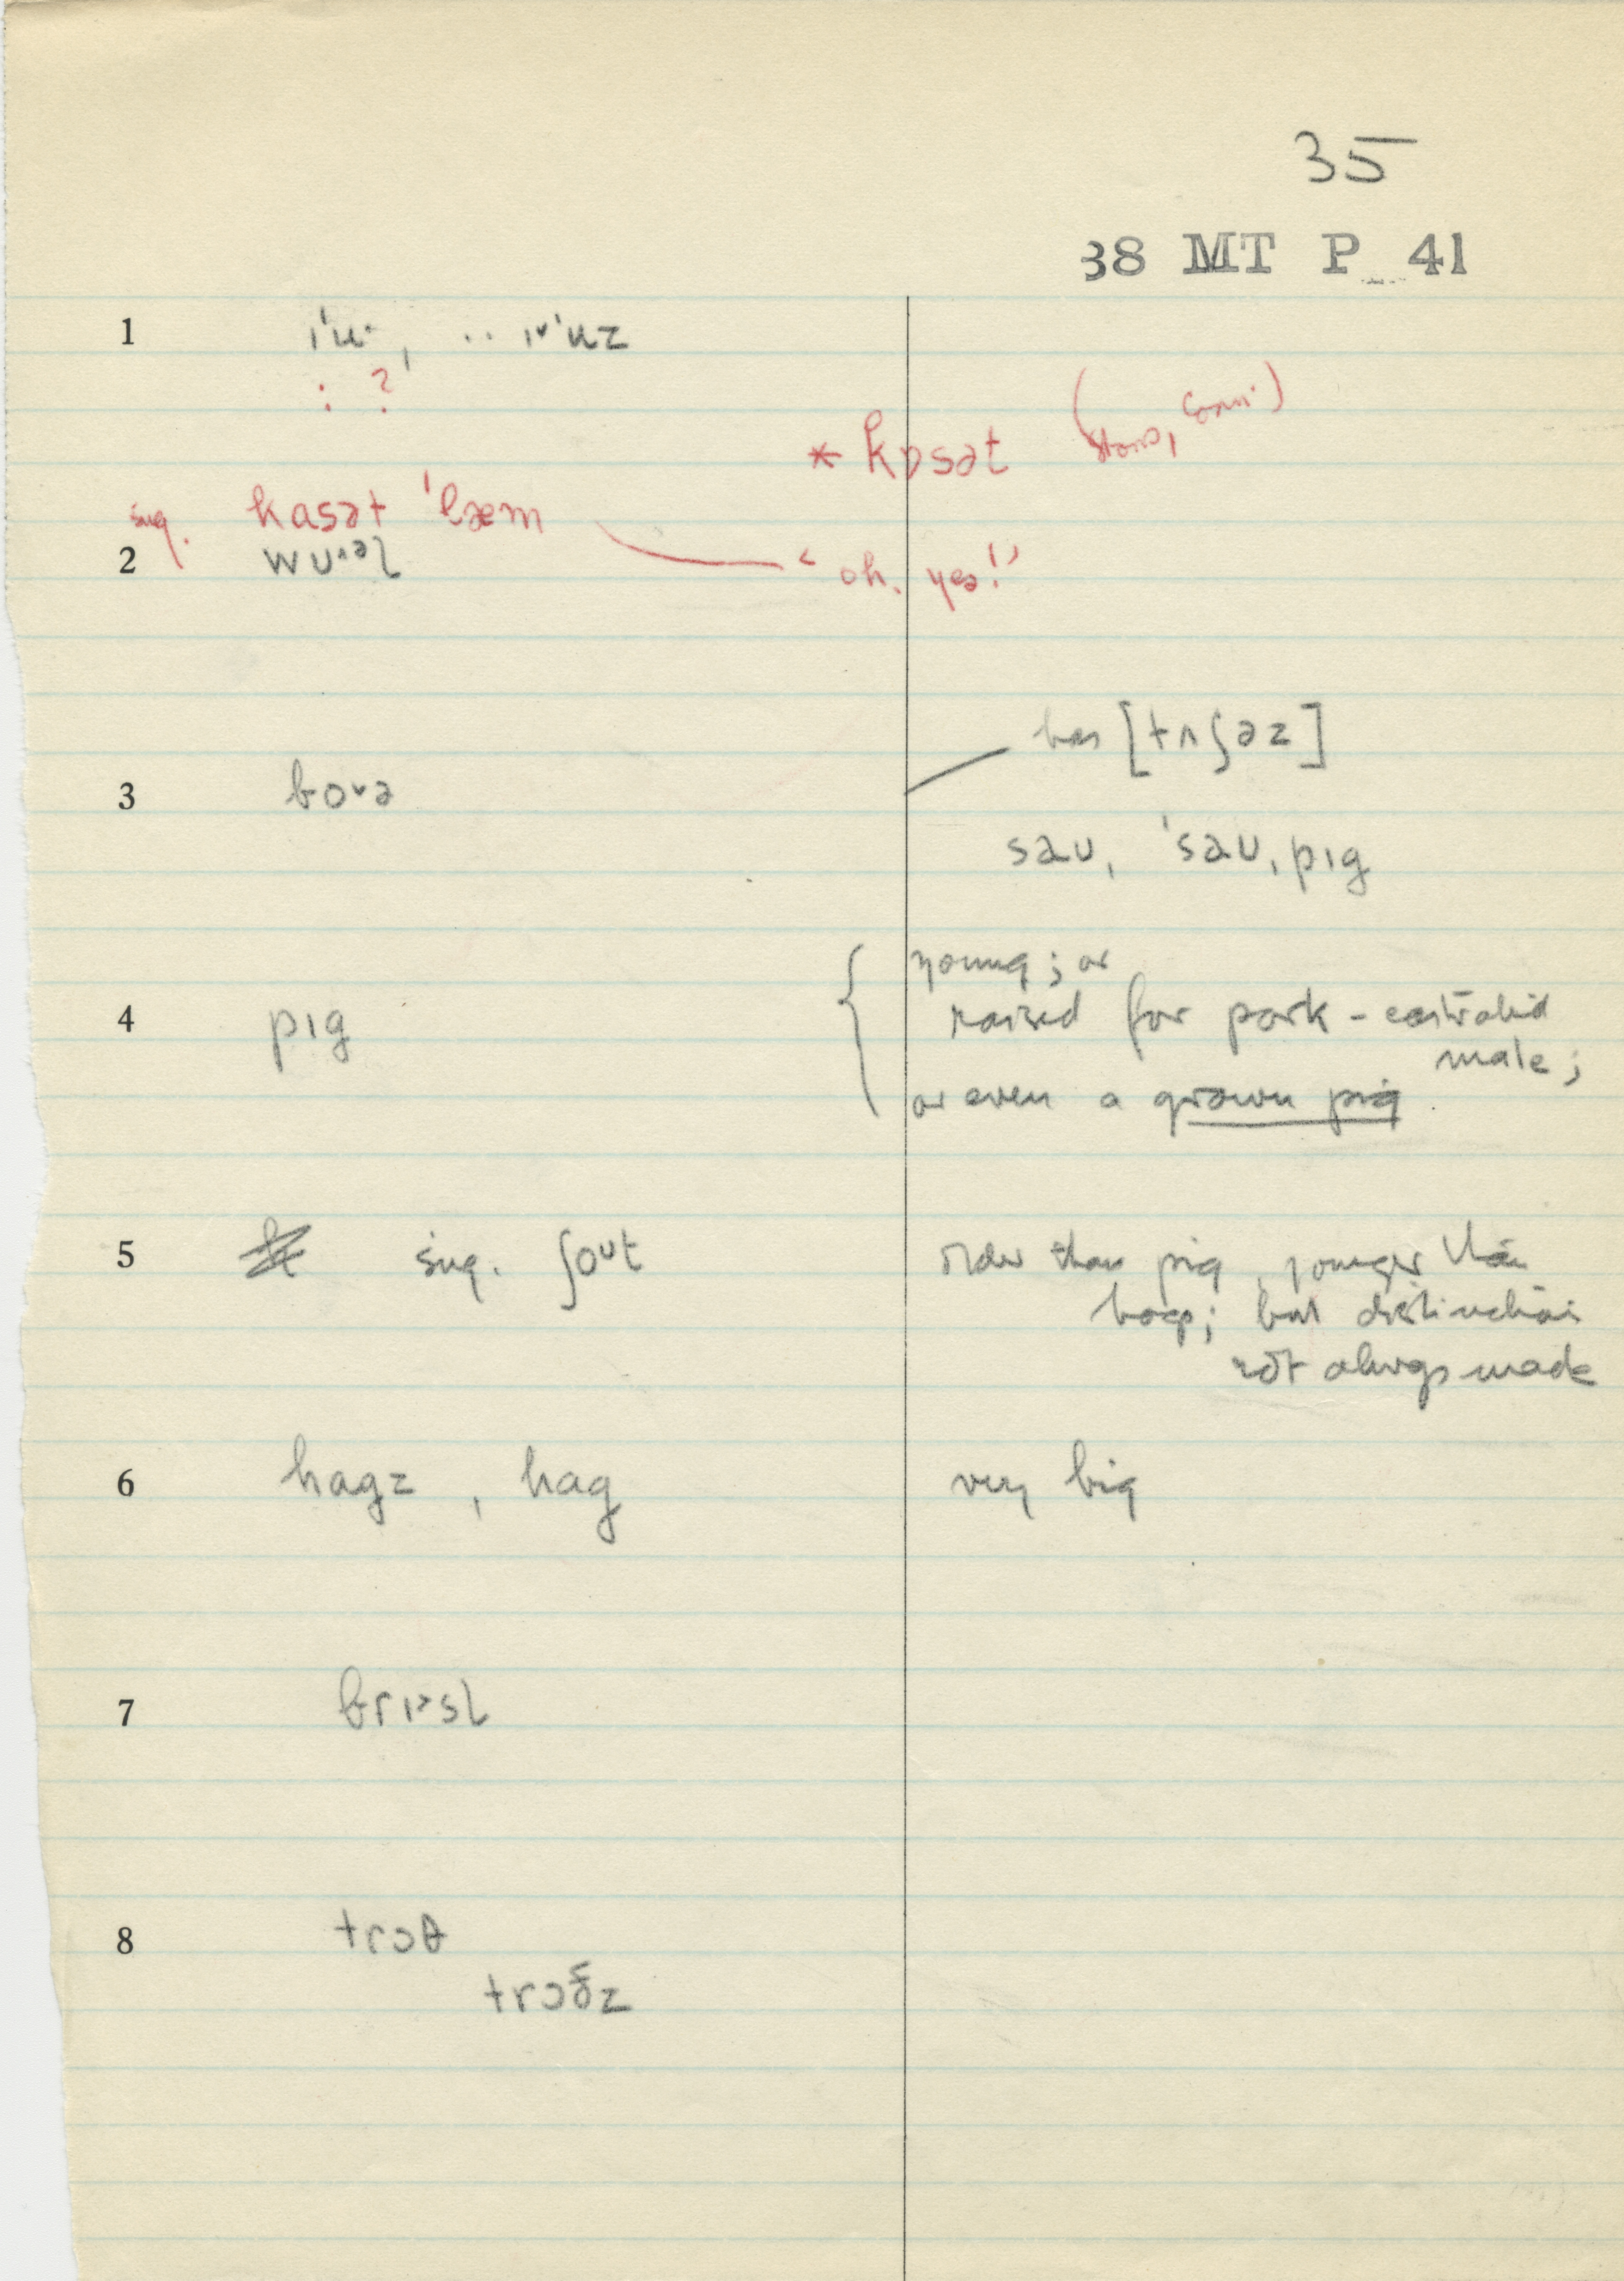 35
38 MT P 41
1
: ?
* kɒsət
sug. kasət 'læm
2 wʊ˄əl
‘oh, yes!’
has [tʌʃəz]
3 bo˅ə
sau, 'sau, pɪg
young; or
4 pɪg raised for pork - castrated
male;
or even a grown pig
5 sug. ʃoᴜt older than pig, younger than
hog; but distinction
not always made
6 hagz, hag very big
7 brɪ˃sl
8 trɔθ
trɔðz